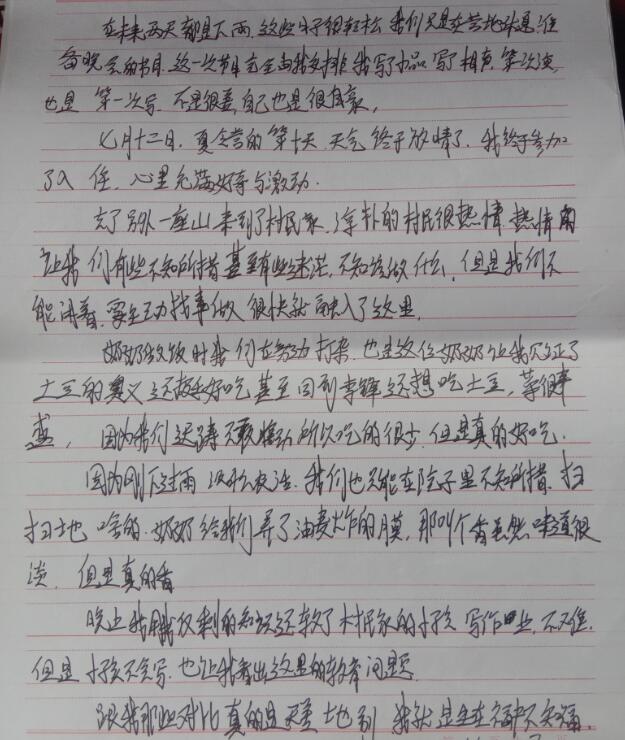 在未来两天都是下雨,这些日子很轻松 我们只是在营地休息,准
备晚会的节目,这一次节目完全由我安排 我写小品 写相声,第一次演
也是 第一次写 不是很善,自己也是很自豪,
七月十二日,夏令营的第十天,天气终于放晴了,我终于参加
了 任,心里充满好奇与激动.
去了另外一座山 来到了村民家,淳朴的村民很热情,热情的
让我们有些不知所措 甚至有些迷茫,不知该做什么,但是我们不
能闲着,要主动找事做 很快就融入了这里,
奶奶做饭时我们在努力打杂,也是这位奶奶让我见证了
土豆的奥义 还挺好吃 甚至回到 还想吃土豆,菜很丰
盛,因为我们 不敢 所以吃的很少,但是真的好吃.
因为刚下过雨 没什么农活,我们也只能在院子里不知所措,扫
扫地 啥的,奶奶给我们弄了油 炸的膜,那叫个香虽然味道很
淡,但是真的香
晚上我用我仅剩的知识还教了村民家的小孩 写作业,不难,
但是小孩不会写,也让我看出这里的教育问题,
跟我那些对比 真的是天差地别 我就是生在福中不知福,